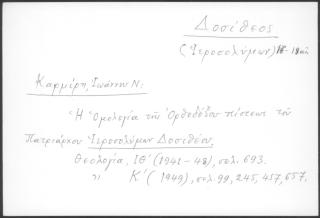 Δοσίθεος
(Ἱεροσολύμων)
Καρμίρη, Ἰωάννου Ν:
Ἡ Ὁμολογία τῆς Ὀρθοδόξου πίστεως τοῦ
Πατριάρχου Ἱεροσολύμων Δοσιθέου,
Θεολογία, ΙΘ' (1941-48), σελ. 693.
" Κ' (1949), σελ. 99, 245, 457, 657.